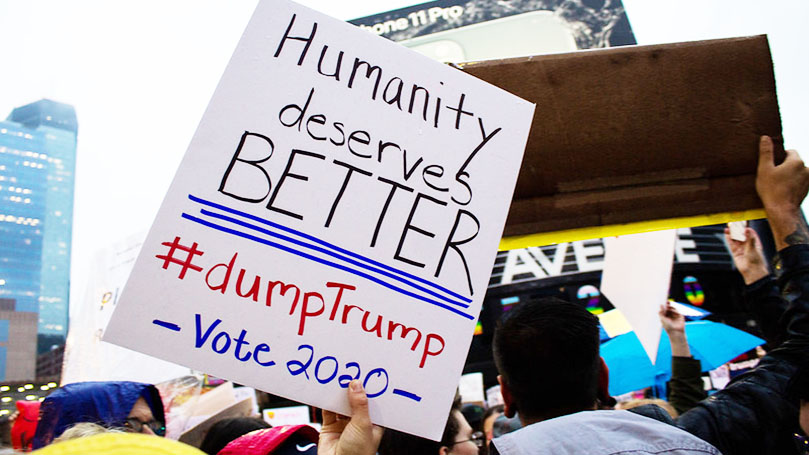 hone 11 Pro
Humanity
deserves
BETTER
#dumpTrump
- Vote 2020 -
AVENUE